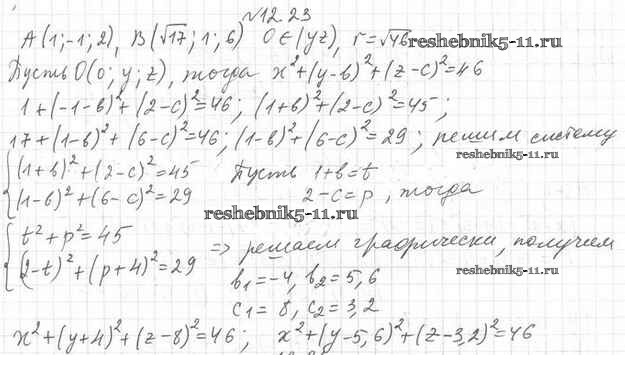 №12.23
A(1;-1;2), B(√17;1;6) O∈(yz), r=√46
reshebnik5-11.ru
Пусть O(0;y;z), тогда x²+(y-b)²+(z-c)²=46
1+(-1-b)²+(2-c)²=46; (1+b)²+(2-c)²=45;
17+(1-b)²+(6-c)²=46; (1-b)²+(6-c)²=29; решим систему
reshebnik5-11.ru
{(1+b)²+(2-c)²=45 Пусть 1+b=t
(1-b)²+(6-c)²=29 2-c=p, тогда
reshebnik5-11.ru
{t²+p²=45
(2-t)²+(p+4)²=29 ⇒ решаем графически, получим
reshebnik5-11.ru
b₁=-4, b₂=5,6
c₁=8, c₂=3,2
x²+(y+4)²+(z-8)²=46; x²+(y-5,6)²+(z-3,2)²=46